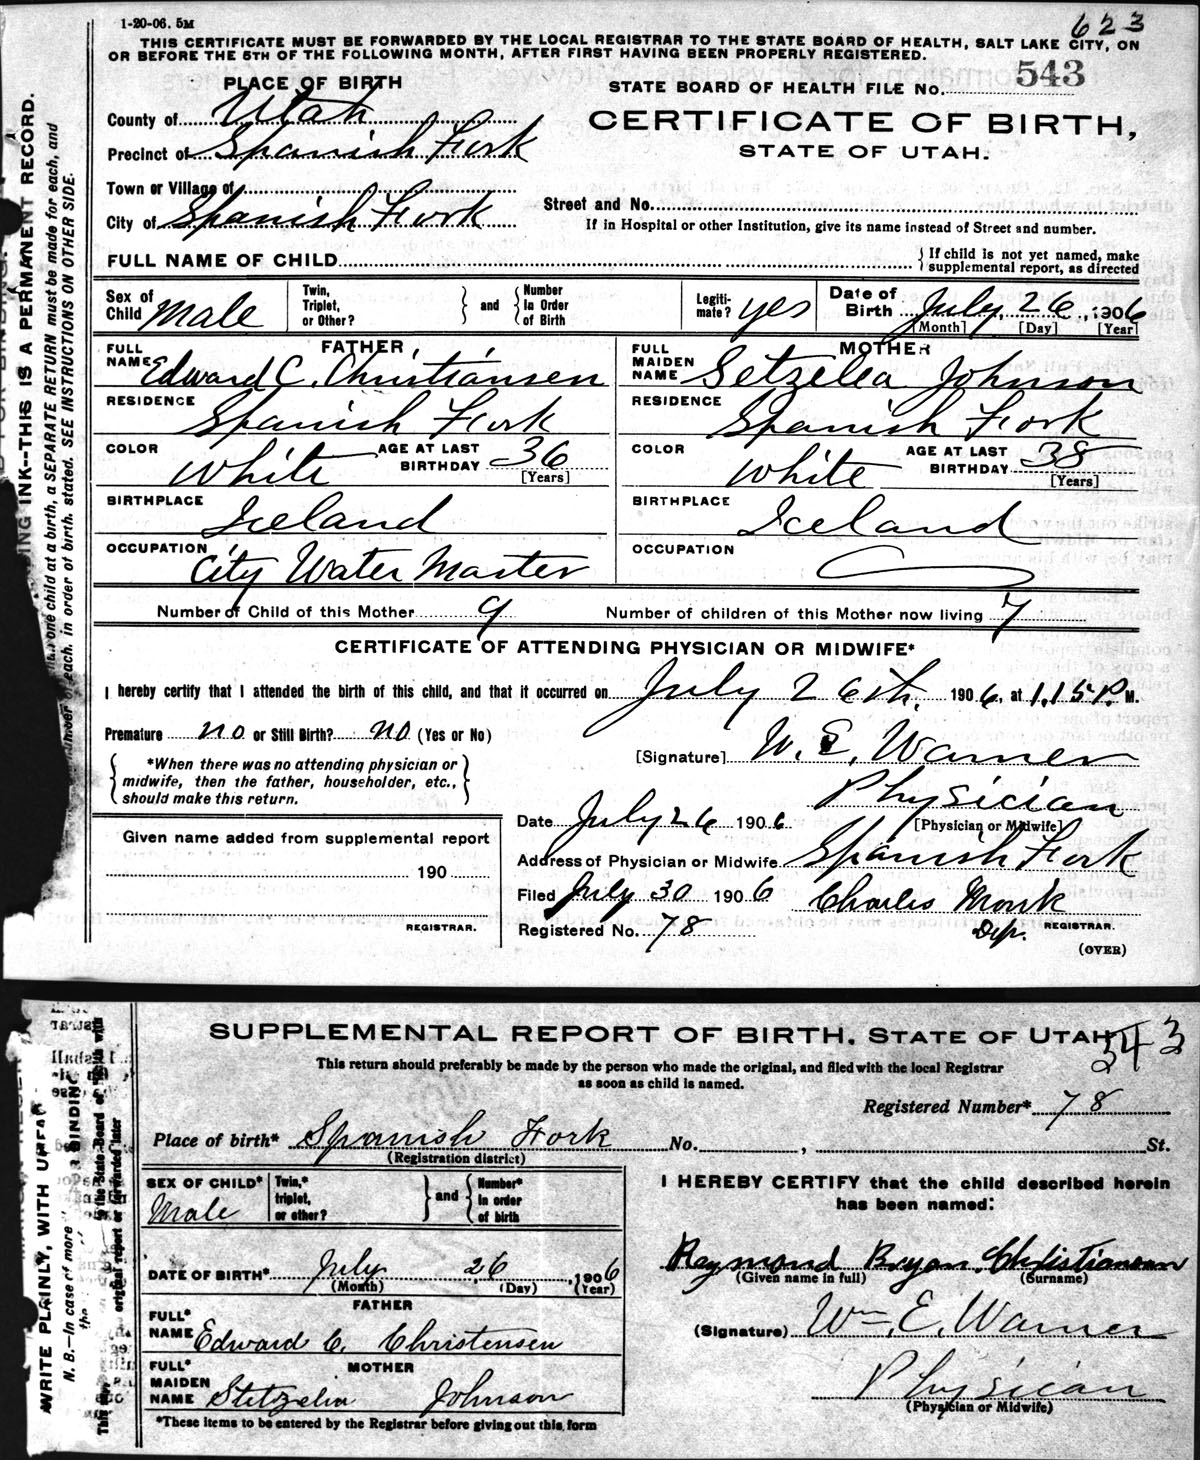 1-20-06. 5M
623
THIS CERTIFICATE MUST BE FORWARDED BY THE LOCAL REGISTRAR TO THE STATE BOARD OF HEALTH, SALT LAKE CITY, ON
OR BEFORE THE 5TH OF THE FOLLOWING MONTH, AFTER FIRST HAVING BEEN PROPERLY REGISTERED.
PLACE OF BIRTH
STATE BOARD OF HEALTH FILE No. 543
County of Utah
CERTIFICATE OF BIRTH,
Precinct of Spanish Fork
STATE OF UTAH.
Town or Village of
City of Spanish Fork
Street and No.
If in Hospital or other Institution, give its name instead of Street and number.
FULL NAME OF CHILD
{ If child is not yet named, make
supplemental report, as directed
Sex of Child Male
Twin, Triplet, or Other? } and { Number in Order of Birth
Legiti-mate? yes
Date of Birth July 26, 1906
[Month] [Day] [Year]
FATHER
FULL NAME Edward C. Christiansen
RESIDENCE Spanish Fork
COLOR White AGE AT LAST BIRTHDAY 36 [Years]
BIRTHPLACE Iceland
OCCUPATION City Water Master
MOTHER
FULL MAIDEN NAME Setzelea Johnson
RESIDENCE Spanish Fork
COLOR White AGE AT LAST BIRTHDAY 38 [Years]
BIRTHPLACE Iceland
OCCUPATION
Number of Child of this Mother 9 Number of children of this Mother now living 7
CERTIFICATE OF ATTENDING PHYSICIAN OR MIDWIFE*
I hereby certify that I attended the birth of this child, and that it occurred on July 26th, 1906, at 1.15 P. M.
Premature no or Still Birth? no (Yes or No)
[Signature] W. E. Warner
{ *When there was no attending physician or
midwife, then the father, householder, etc.,
should make this return. }
Physician
[Physician or Midwife]
Date July 26 1906
Given name added from supplemental report
190
REGISTRAR.
Address of Physician or Midwife Spanish Fork
Filed July 30 1906 Charles Monk
Registered No. 78 Dep. REGISTRAR.
(OVER)
ING INK--THIS IS A PERMANENT RECORD.
one child at a birth, a SEPARATE RETURN must be made for each, and
number of each, in order of birth, stated. SEE INSTRUCTIONS ON OTHER SIDE.
SUPPLEMENTAL REPORT OF BIRTH. STATE OF UTAH
543
This return should preferably be made by the person who made the original, and filed with the local Registrar
as soon as child is named.
Registered Number* 78
Place of birth* Spanish Fork No. , St.
(Registration district)
SEX OF CHILD* Male
Twin,* triplet, or other? } and { Number* in order of birth
DATE OF BIRTH* July 26, 1906
(Month) (Day) (Year)
FATHER
FULL* NAME Edward C. Christensen
MOTHER
FULL* MAIDEN NAME Stetzelia Johnson
*These items to be entered by the Registrar before giving out this form
I HEREBY CERTIFY that the child described herein
has been named:
Raymond Bryan Christiansen
(Given name in full) (Surname)
(Signature) Wm. E. Warner
Physician
(Physician or Midwife)
WRITE PLAINLY, WITH UNFA
N. B.—In case of more
BINDING
the State Board of Health with
original report or forwarded later